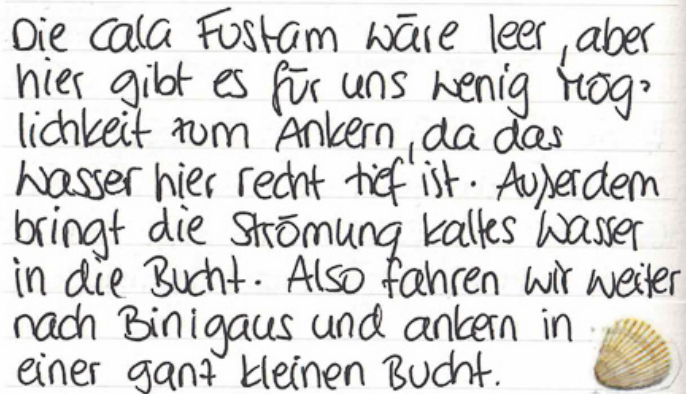 Die Cala Fustam wäre leer, aber
hier gibt es für uns wenig Mög-
lichkeit zum Ankern, da das
Wasser hier recht tief ist. Außerdem
bringt die Strömung kaltes Wasser
in die Bucht. Also fahren wir weiter
nach Binigaus und ankern in
einer ganz kleinen Bucht.